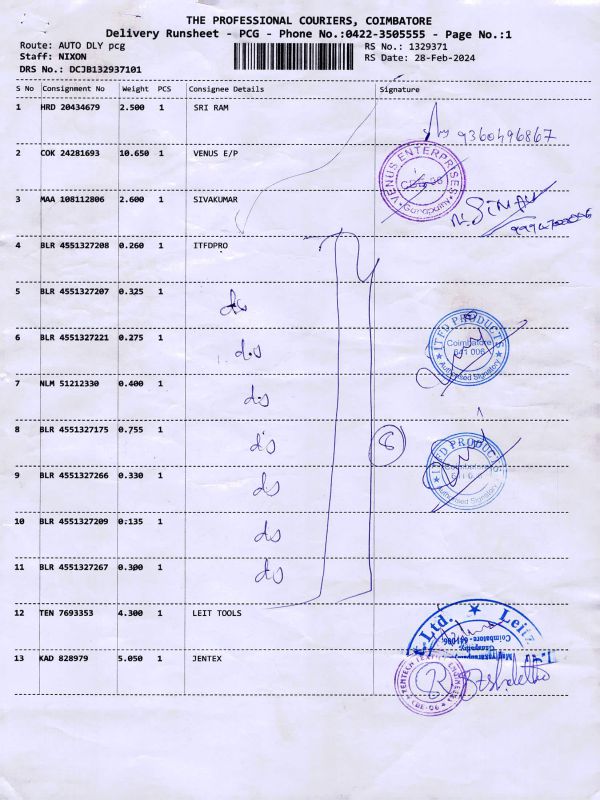 THE PROFESSIONAL COURIERS, COIMBATORE
Delivery Runsheet - PCG - Phone No.:0422-3505555 - Page No.:1
Route: AUTO DLY pcg RS No.: 1329371
Staff: NIXON RS Date: 28-Feb-2024
DRS No.: DCJB132937101
S No Consignment No Weight PCS Consignee Details Signature
1 HRD 20434679 2.500 1 SRI RAM
9360496867
2 COK 24281693 10.650 1 VENUS E/P
VENUS ENTERPRISES
Ganapathy
3 MAA 108112806 2.600 1 SIVAKUMAR
4 BLR 4551327208 0.260 1 ITFDPRO
5 BLR 4551327207 0.325 1 ds
6 BLR 4551327221 0.275 1 ds
ITFD PRODUCTS
Coimbatore
641 006
Authorised Signatory
7 NLM 51212330 0.400 1 ds
8 BLR 4551327175 0.755 1 ds
8
ITFD PRODUCTS
Coimbatore
Authorised Signatory
9 BLR 4551327266 0.330 1 ds
10 BLR 4551327209 0:135 1 ds
11 BLR 4551327267 0.300 1 ds
12 TEN 7693353 4.300 1 LEIT TOOLS
Ltd. Leitz
Coimbatore - 641006.
Ganapathy,
13 KAD 828979 5.050 1 JENTEX
CBE-06